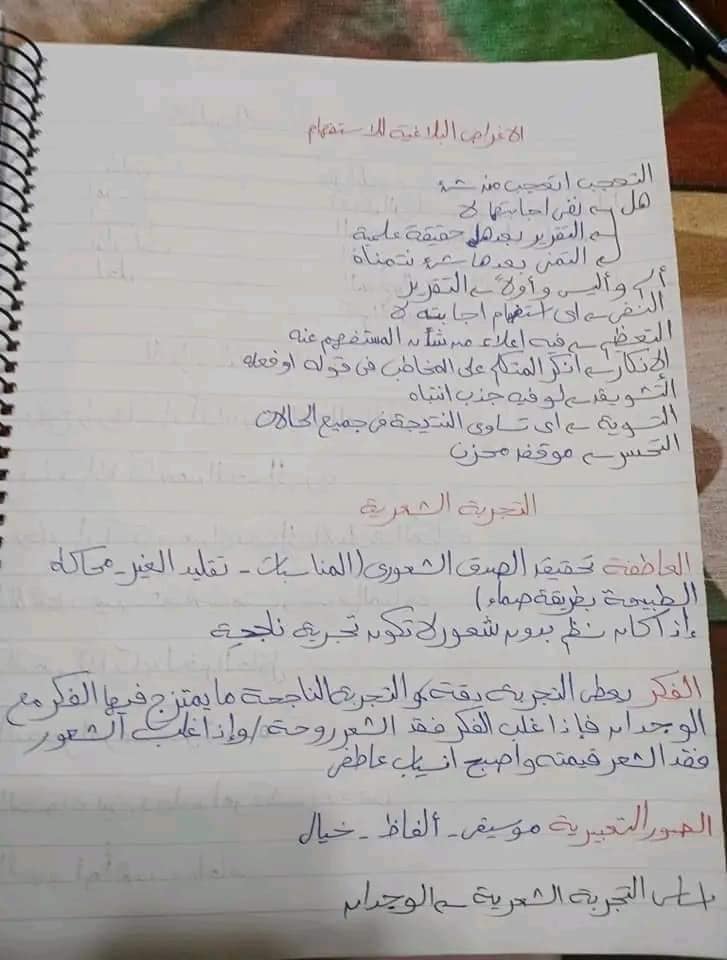 الاغراض البلاغية للاستفهام
التعجب اتعجب من شئ
هل ← نفى اجابتها لا
← التقرير بعدها حقيقة علمية
← التمنى بعدها شئ نتمناه
ألم وأليس وأولا ← التقرير
النفى ← اى استفهام اجابته لا
التعظيم ← فيه إعلاء من شأن المستفهم عنه
الانكار ← انكر المتكلم على المخاطب فى قوله او فعله
التشويق ← لو فيه جذب انتباه
التسوية ← اى تساوى النتيجة فى جميع الحالات
التحسر ← موقف محزن
التجربة الشعرية
العاطفة تحقيق الصدق الشعورى (المناسبات - تقليد الغير - محاكاة
الطبيعة بطريقة صماء)
إذا كان نظم بدون شعور لا تكون تجربة ناجحة
الفكر يعطى التجربة دقة والتجربة الناجحة ما يمتزج فيها الفكر مع
الوجدان فإذا غلب الفكر فقد الشعر روحة / وإذا غلب الشعور
فقد الشعر قيمته وأصبح انسياب عاطفى
الصور التعبيرية موسيقى - ألفاظ - خيال
أساس التجربة الشعرية ← الوجدان